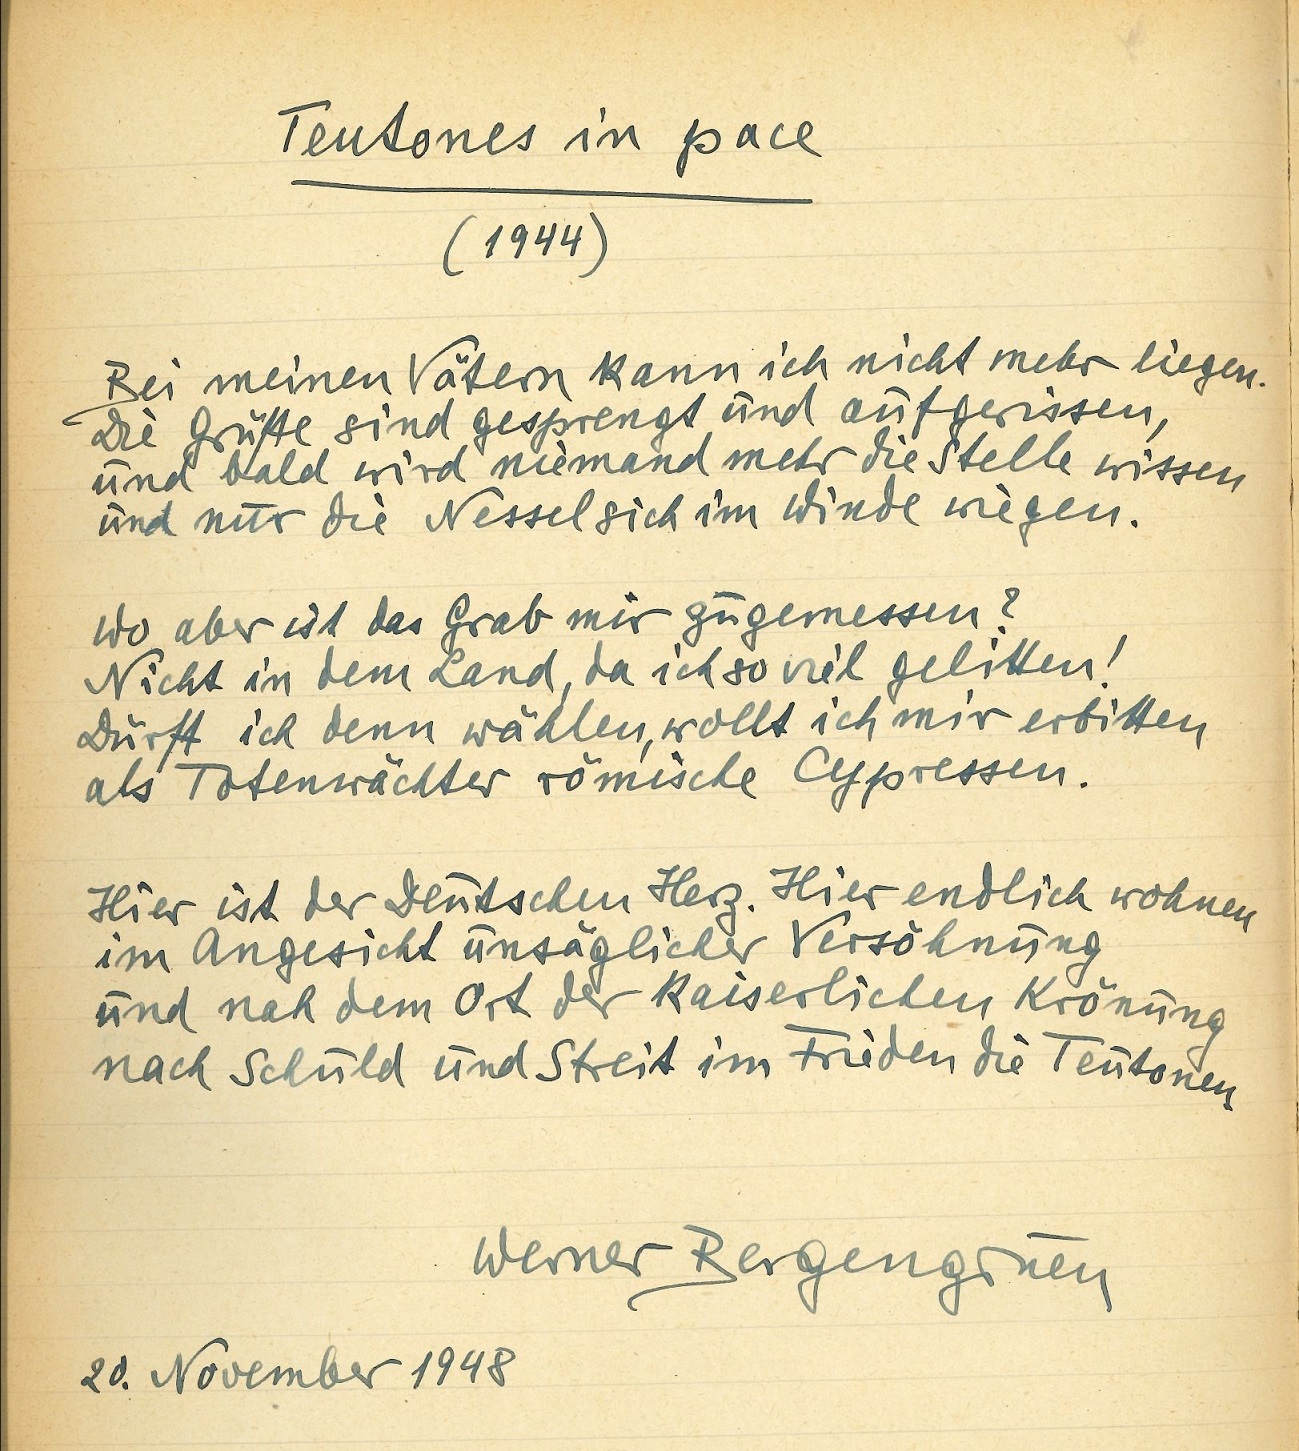 Teutones in pace
(1944)
Bei meinen Vätern kann ich nicht mehr liegen.
Die Grüfte sind gesprengt und aufgerissen,
und bald wird niemand mehr die Stelle wissen
und nur die Nessel sich im Winde wiegen.
Wo aber ist das Grab mir zugemessen?
Nicht in dem Land, da ich so viel gelitten!
Dürft ich denn wählen, wollt ich mir erbitten
als Totenwächter römische Cypressen.
Hier ist der Deutschen Herz. Hier endlich wohnen
im Angesicht unsäglicher Versöhnung
und nah dem Ort der kaiserlichen Krönung
nach Schuld und Streit im Frieden die Teutonen.
Werner Bergengruen
20. November 1948